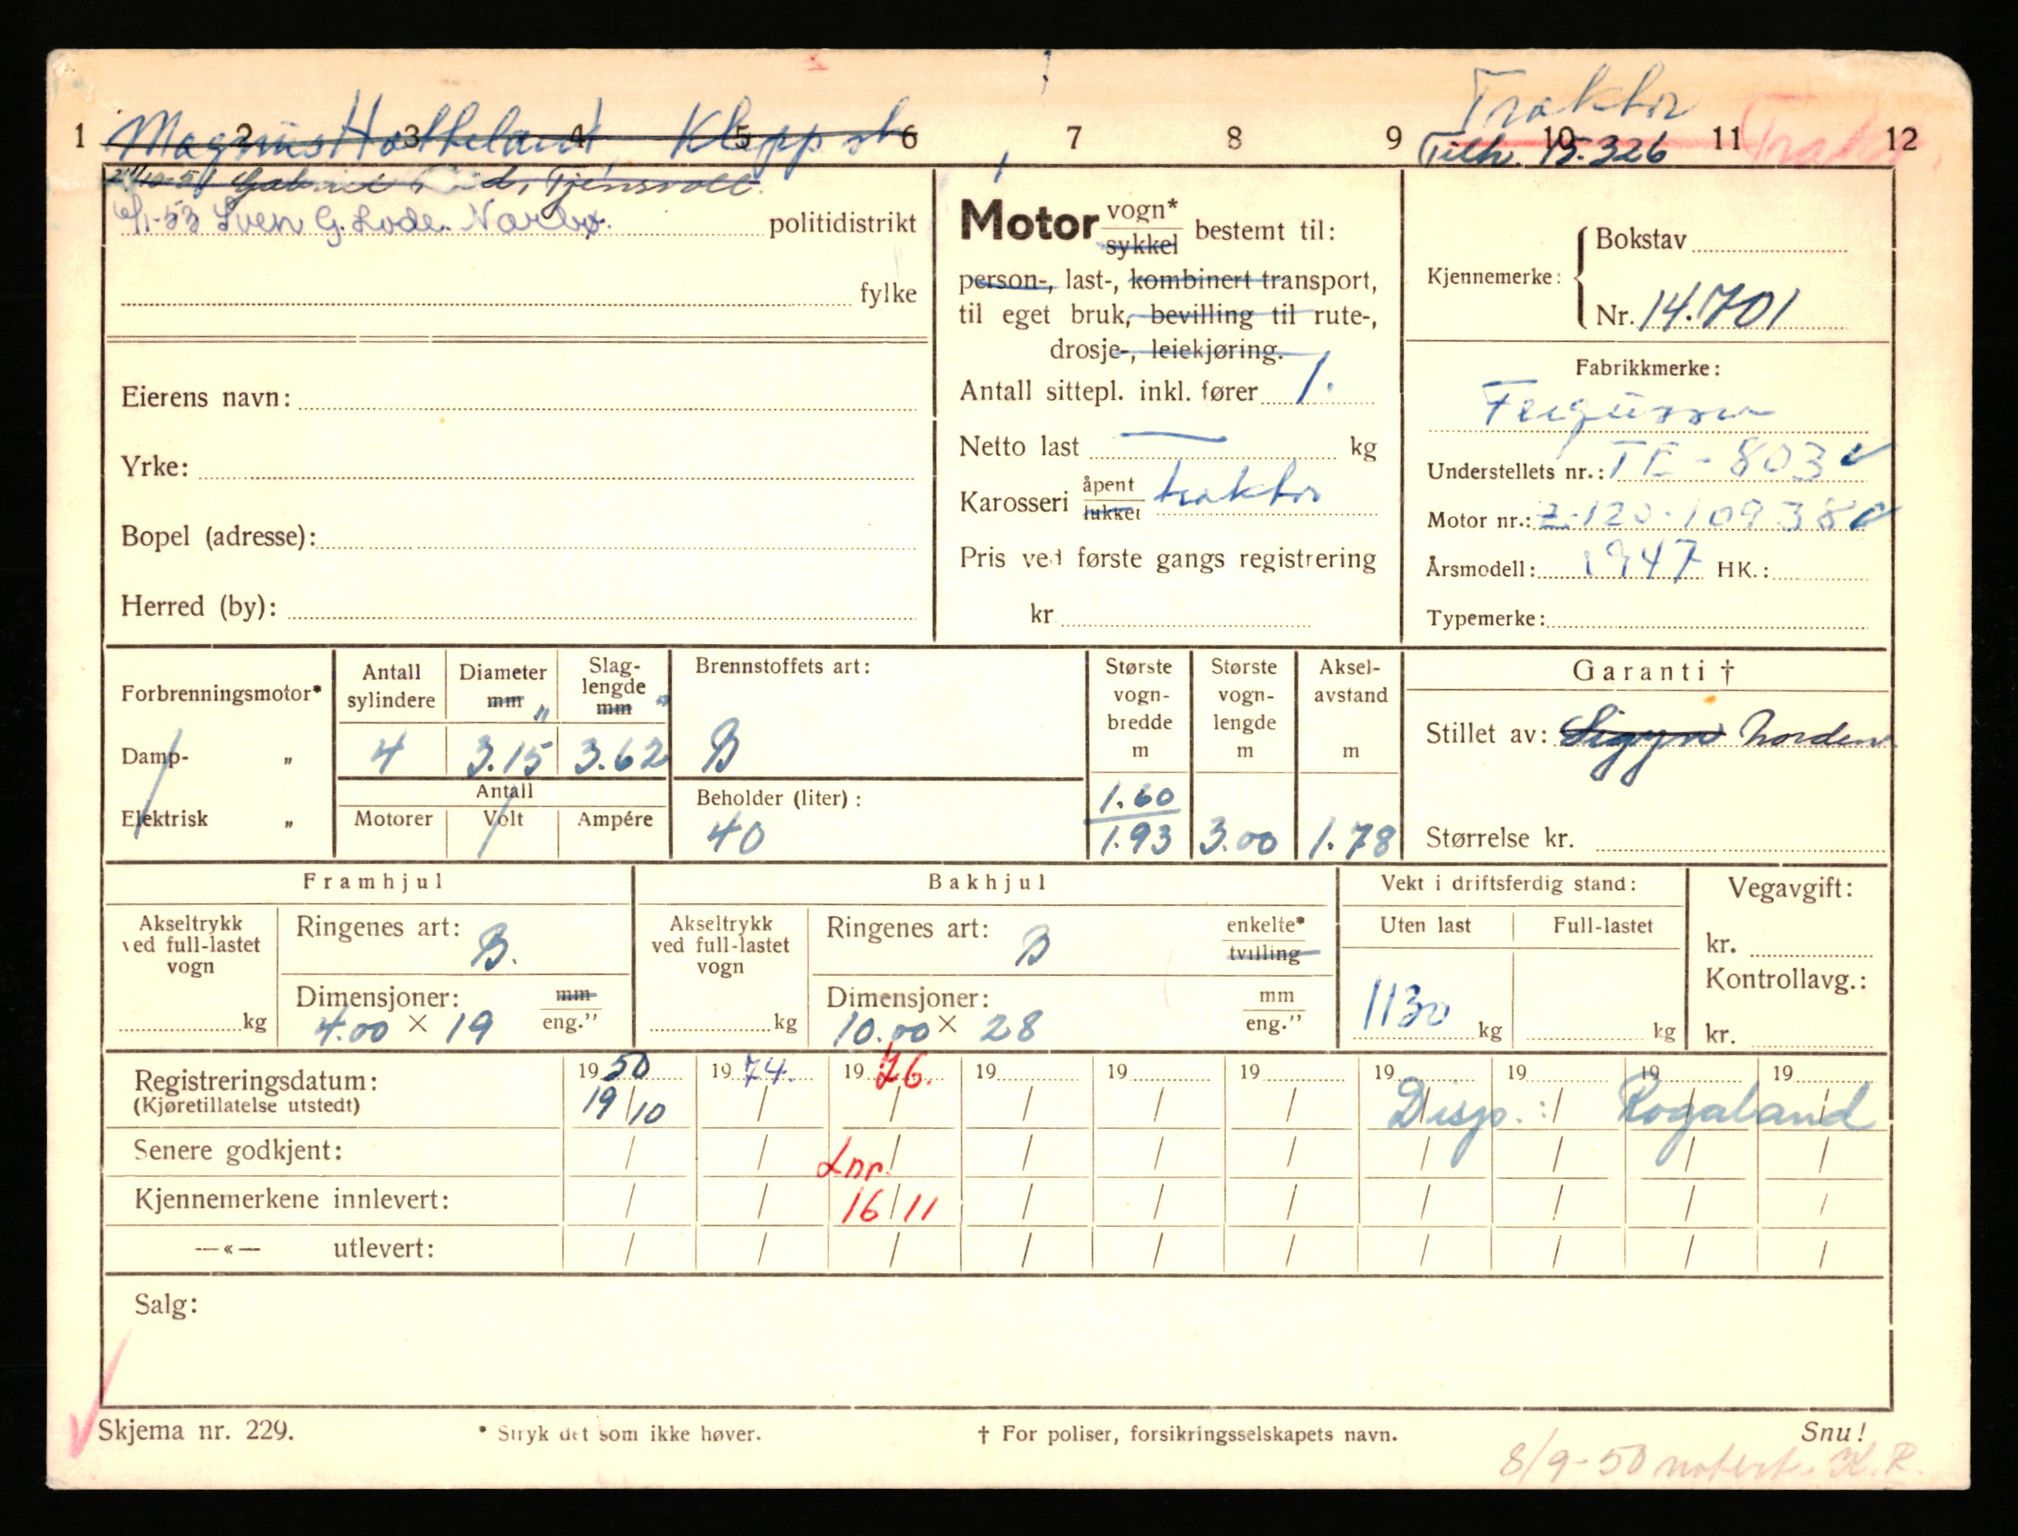 Traktor
1 2 3 4 5 6 7 8 9 10 11 12
Magnus Holteland Klepp st.
Tilh. 15.326
Trakt.
Gabriel Tjensvoll.
6/1-53 Sven G. Lode. Nærbø. politidistrikt
fylke
Eierens navn:
Yrke:
Bopel (adresse):
Herred (by):
Motor vogn* sykkel bestemt til:
person-, last-, kombinert transport,
til eget bruk, bevilling til rute-,
drosje-, leiekjøring.
Antall sittepl. inkl. fører 1.
Netto last — kg
Karosseri åpent lukket traktor
Pris ved første gangs registrering
kr
Kjennemerke: Bokstav
Nr. 14.701
Fabrikkmerke:
Ferguson
Understellets nr.: TE-803
Motor nr.: Z-120-10938
Årsmodell: 1947 HK.:
Typemerke:
Forbrenningsmotor*
Damp- „
Elektrisk „
Antall sylindere
4
Diameter mm "
3.15
Slag-lengde mm "
3.62
Antall
Motorer Volt Ampére
Brennstoffets art:
B
Beholder (liter):
40
Største vogn-bredde m
1.60
1.93
Største vogn-lengde m
3.00
Aksel-avstand m
1.78
Garanti †
Stillet av: Sigyn Norden
Størrelse kr.
Framhjul
Akseltrykk ved full-lastet vogn
kg
Ringenes art: B.
Dimensjoner: mm eng."
4.00 × 19
Bakhjul
Akseltrykk ved full-lastet vogn
kg
Ringenes art: B enkelte* tvilling
Dimensjoner: mm eng."
10.00 × 28
Vekt i driftsferdig stand:
Uten last Full-lastet
1130 kg kg
Vegavgift:
kr.
Kontrollavg.:
kr.
Registreringsdatum: 19 50 19 74. 19 76. 19 19 19 19 19 19 19
(Kjøretillatelse utstedt) 19/10 / / / / / / / / /
Disp.: Rogaland
Senere godkjent: / / Lnr. / / / / / / / /
Kjennemerkene innlevert: / / 16/11 / / / / / / /
—«— utlevert: / / / / / / / / / /
Salg:
Skjema nr. 229. * Stryk det som ikke høver. † For poliser, forsikringsselskapets navn. Snu!
8/9-50 notert. K.R.